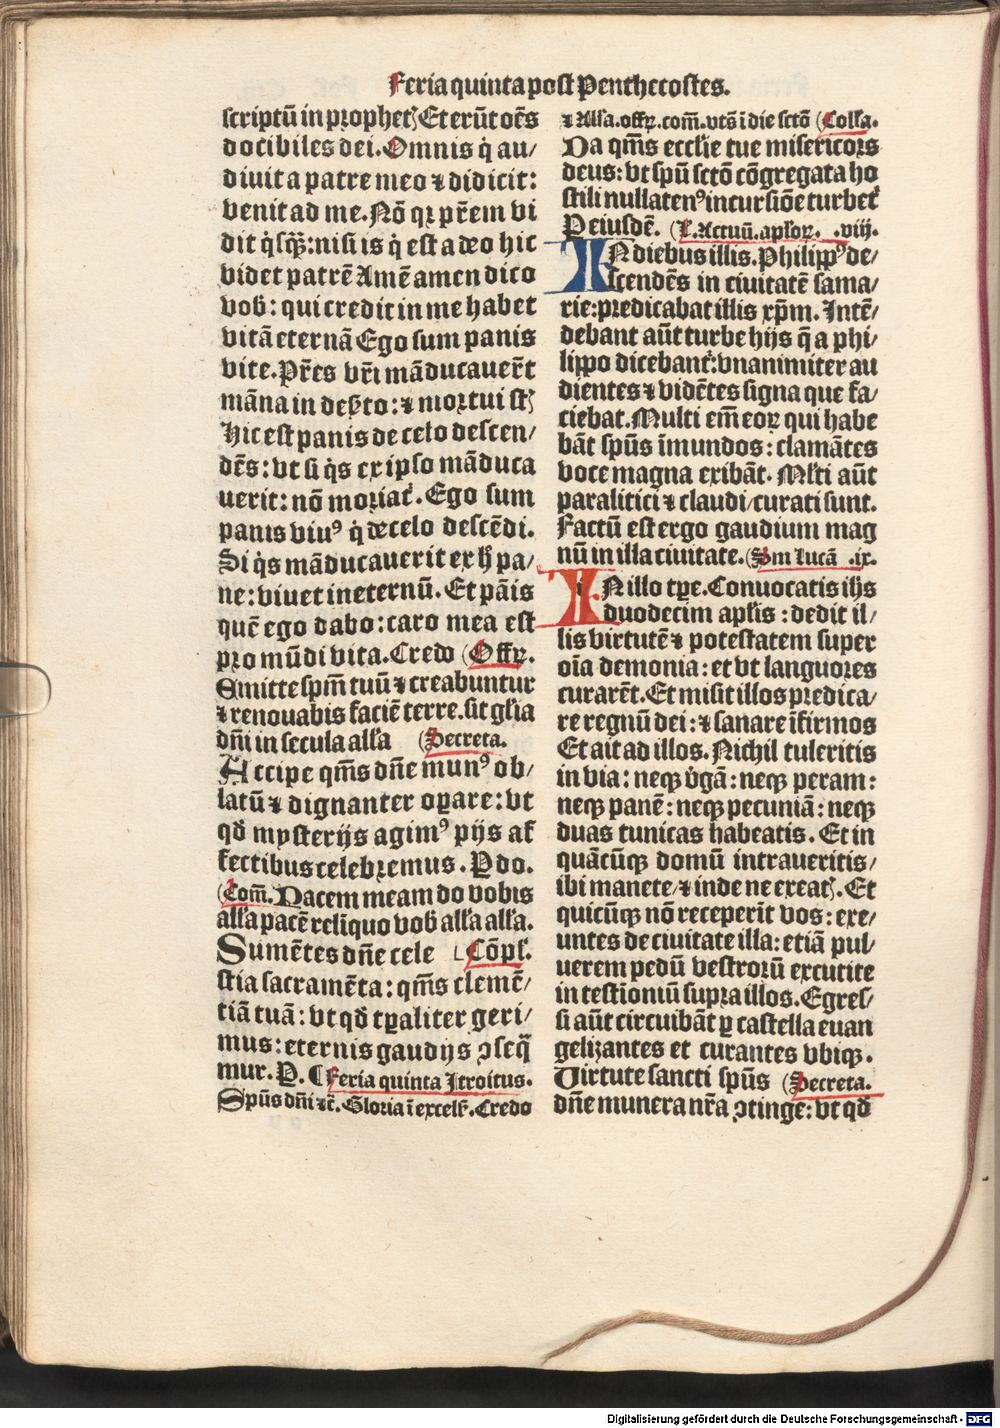 Feria quinta post Penthecostes.
scriptū in prophetꝭ Et erūt oēs
docibiles dei. Omnis q̇ au/
diuit a patre meo ⁊ didicit:
venit ad me. Nō qꝛ pr̄em vi
dit q̇sꝙ̄: nisi is q̇ est a deo hic
videt patrē Amē amen dico
vob̄: qui credit in me habet
vitā eternā Ego sum panis
vite. Pr̄es vr̄i māducauer̄t
māna in deẜto: ⁊ mortui st̄
Hic est panis de celo descen/
dēs: vt si q̇s ex ipso māduca
uerit: nō moriat᷑. Ego sum
panis viuꝰ q̇ de celo descēdi.
Si q̇s māducauerit ex h̄ pa/
ne: viuet in eternū. Et pāis
quē ego dabo: caro mea est
pro mūdi vita. Credo (Offꝝ.
Emitte spm̄ tuū ⁊ creabuntur
⁊ renouabis faciē terre. sit gl̄ia
dn̄i in secula all̄a (Secreta.
Accipe qm̄s dn̄e munꝰ ob/
latū ⁊ dignanter oꝑare: vt
qd̄ mysterijs agimꝰ pijs af
fectibus celebremus. P do.
(Com̄. Pacem meam do vobis
all̄a pacē relīquo vob̄ all̄a all̄a.
Sumētes dn̄e cele (Cōpl̄.
stia sacramēta: qm̄s clemē/
tiā tuā: vt qd̄ tꝑaliter geri/
mus: eternis gaudijs ↄseq̄
mur. P. (Feria quinta Itroitus.
Spūs dn̄i ⁊c̄. Gloria ī excels̄. Credo
⁊ All̄a. offꝝ. com̄. vts̄ ī die sctō (Coll̄a.
Da qm̄s eccl̄ie tue misericors
deus: vt spū sctō cōgregata ho
stili nullatenꝰ incursiōe turbet᷑
P eiusdē. (L. Actuū. apl̄oꝝ. .viij.
IN diebus illis. Philippꝰ de/
scendēs in ciuitatē sama/
rie: predicabat illis xp̄m. Intē/
debant aūt turbe hijs q̄ a phi/
lippo dicebant᷑: vnanimiter au
dientes ⁊ vidētes signa que fa/
ciebat. Multi em̄ eoꝝ qui habe
bāt spūs īmundos: clamātes
voce magna exibāt. Ml̄ti aūt
paralitici ⁊ claudi/ curati sunt.
Factū est ergo gaudium mag
nū in illa ciuitate. (Scm Lucā .ix.
IN illo tꝑe. Conuocatis ih̄s
duodecim apl̄is: dedit il/
lis virtutē ⁊ potestatem super
oīa demonia: et vt languores
curarēt. Et misit illos predica/
re regnū dei: ⁊ sanare īfirmos
Et ait ad illos. Nichil tuleritis
in via: neqꝫ v̄gā: neqꝫ peram:
neqꝫ panē: neqꝫ pecuniā: neqꝫ
duas tunicas habeatis. Et in
quācūqꝫ domū intraueritis/
ibi manete/ ⁊ inde ne exeatꝭ. Et
quicūqꝫ nō receperīt vos: exe/
untes de ciuitate illa: etiā pul/
uerem pedū vestrorū excutite
in testioniū supra illos. Egres/
si aūt circuibāt ꝑ castella euan
gelizantes et curantes vbiqꝫ.
Virtute sancti spūs (Secreta.
dn̄e munera nr̄a ↄtinge: vt qd̄
Digitalisierung gefördert durch die Deutsche Forschungsgemeinschaft - DFG